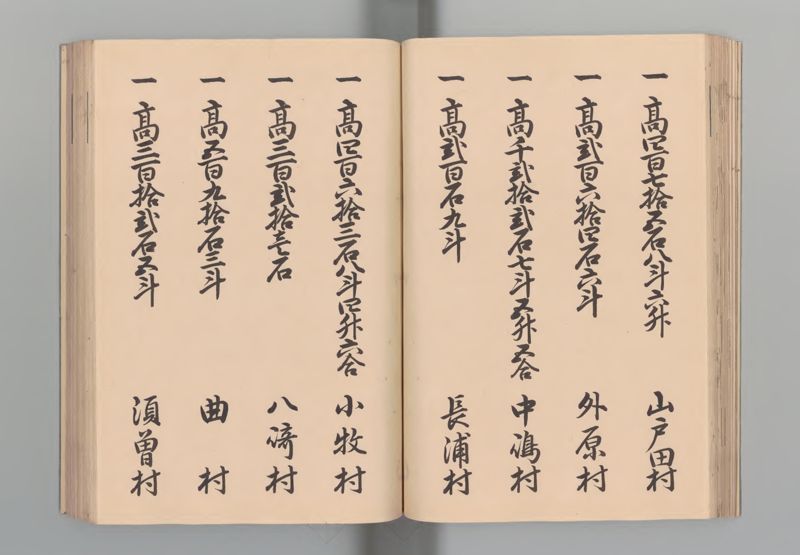 一 高四百七拾五石八斗六升 山戸田村
一 高弐百六拾四石六斗 外原村
一 高千弐拾弐石七斗五升五合 中嶋村
一 高弐百石九斗 長浦村
一 高四百六拾三石八斗四升六合 小牧村
一 高三百弐拾壱石 八﨑村
一 高五百九拾石三斗 曲村
一 高三百拾弐石五斗 須曽村